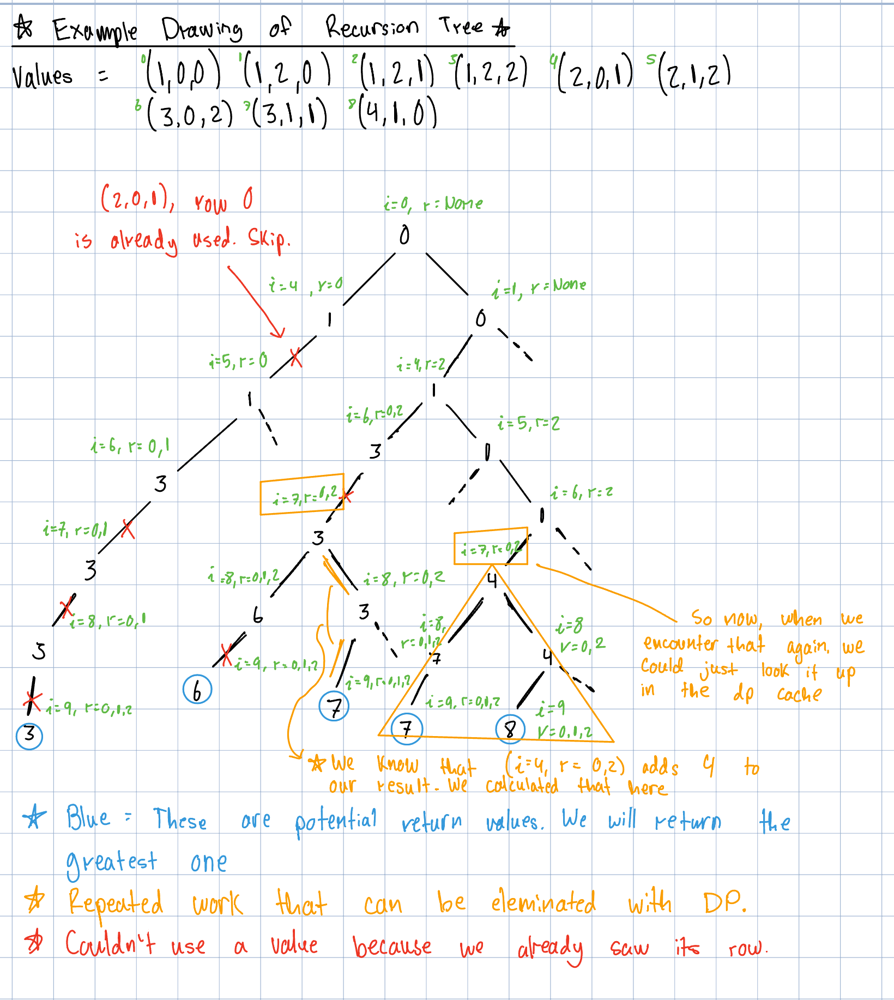 ☆ Example Drawing of Recursion Tree ☆
Values = 0(1,0,0) 1(1,2,0) 2(1,2,1) 3(1,2,2) 4(2,0,1) 5(2,1,2)
6(3,0,2) 7(3,1,1) 8(4,1,0)
(2,0,1), row 0
is already used. Skip.
i=0, r=None
0
i=4, r=0
i=1, r=None
1
0
i=5, r=0
i=4, r=2
1
1
i=6, r=0,2
i=5, r=2
i=6, r=0,1
3
1
3
i=7, r=0,2
i=6, r=2
i=7, r=0,1
3
1
i=7, r=0,2
3
i=8, r=0,1,2
i=8, r=0,2
4
i=8, r=0,1
6
3
i=8,
r=0,1,2
i=8
r=0,2
3
i=9, r=0,1,2
7
4
6
i=9, r=0,1,2
i=9, r=0,1,2
i=9
r=0,1,2
i=9, r=0,1,2
7
3
7
8
So now, when we
encounter that again, we
could just look it up
in the dp cache
☆ We know that (i=4, r=0,2) adds 4 to
our result. We calculated that here
☆ Blue = These are potential return values. We will return the
greatest one
☆ Repeated work that can be eleminated with DP.
☆ Couldn't use a value because we already saw its row.